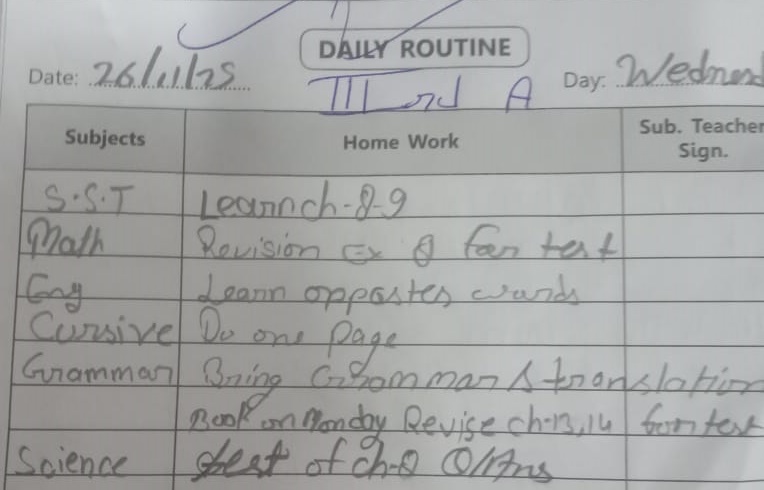 DAILY ROUTINE
Date: 26/11/25 Day: Wednesd
III rd A
Subjects Home Work Sub. Teacher Sign.
S.S.T Learn ch-8-9
Math Revision Ex 8 for test
Eng Learn oppostes words
Cursive Do one page
Grammar Bring Grammar & translation
Book on Monday Revise ch-13,14 for test
Science test of ch-8 Q/Ans